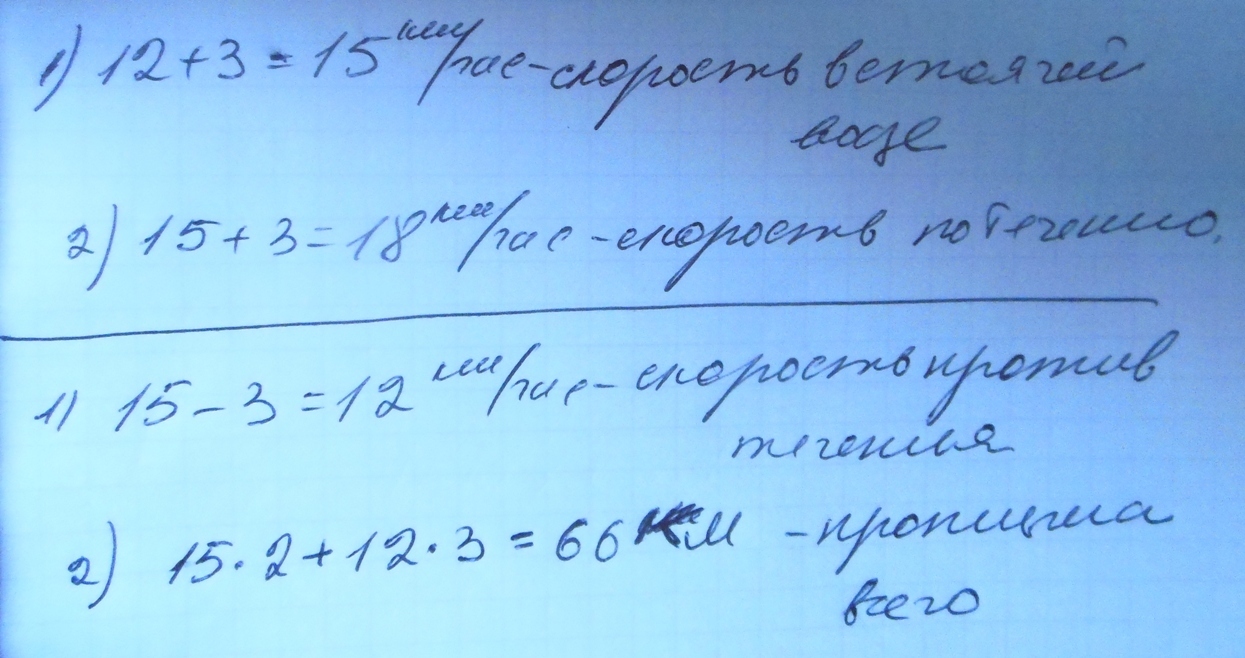 1) 12 + 3 = 15 км/час - скорость в стоячей
воде
2) 15 + 3 = 18 км/час - скорость по течению.
1) 15 - 3 = 12 км/час - скорость против
теченья
2) 15 · 2 + 12 · 3 = 66 км - проплыла
всего